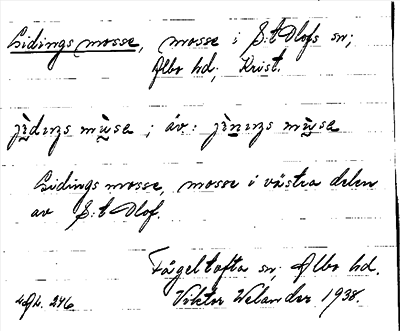 Gidings mosse, mosse i S:t Olofs sn;
Albo hd, Krist.
jèdıŋs mùsa; äv.: jènıŋs mùsa
Gidings mosse, mosse i västra delen
av S:t Olof.
Fågeltofta sn, Albo hd.
Viktor Welander 1938.
246